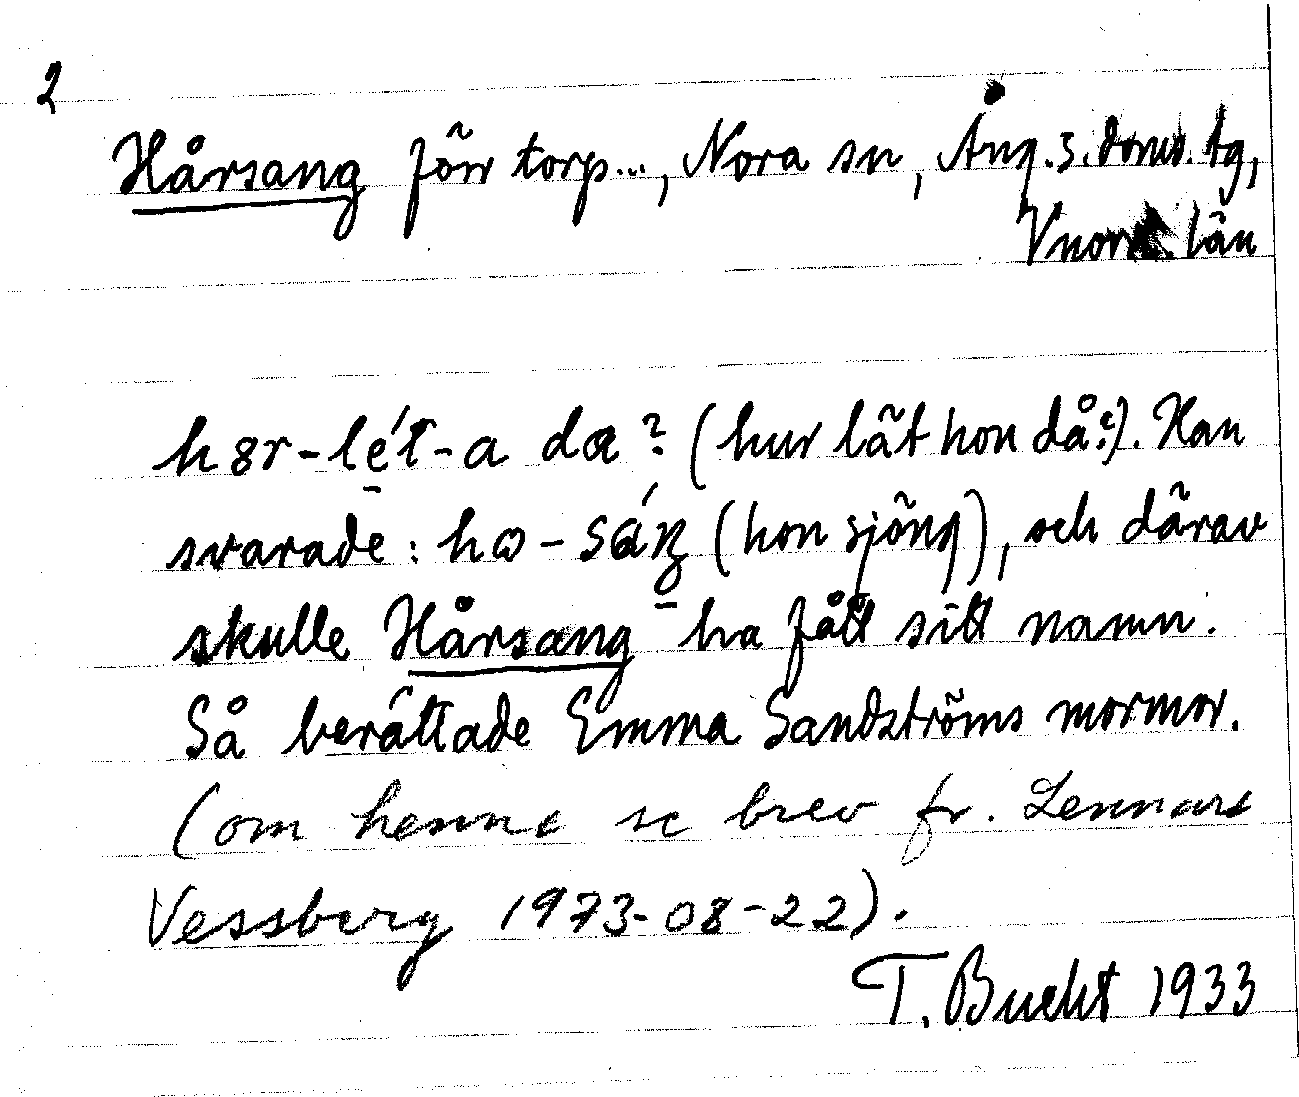 2
Hårsang förr torp..., Nora sn, Ång. s. doms. tg,
Vnorrl. län
hɷr-lét-a da? (hur lät hon då?). Han
svarade: hɷ-sáŋ (hon sjöng), och därav
skulle Hårsang ha fått sitt namn.
Så berättade Emma Sandströms mormor.
(om henne se brev fr. Lennart
Vessberg 1973-08-22).
T. Bucht 1933